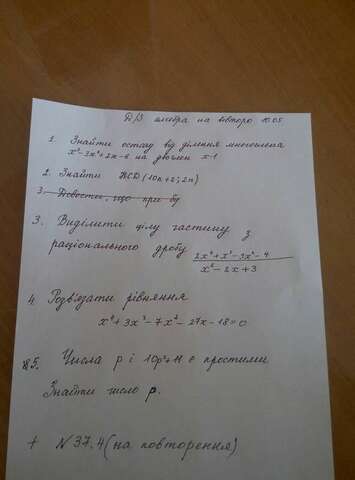 Д/З алгебра на вівторо 10.05
1. Знайти остачу від ділення многочлена
x⁵-3x⁴+2x-6 на двочлен x-1
2. Знайти НСД (10n+2; 2n)
3. Довести, що при бу
3. Виділити цілу частину з
раціонального дробу 2x⁴+x³-3x²-4
x²-2x+3
4. Розв'язати рівняння
x⁴+3x³-7x²-27x-18=0
5. Числа p і 10p²+11 є простими
Знайти число p.
+ N 37.4 (на повторення)